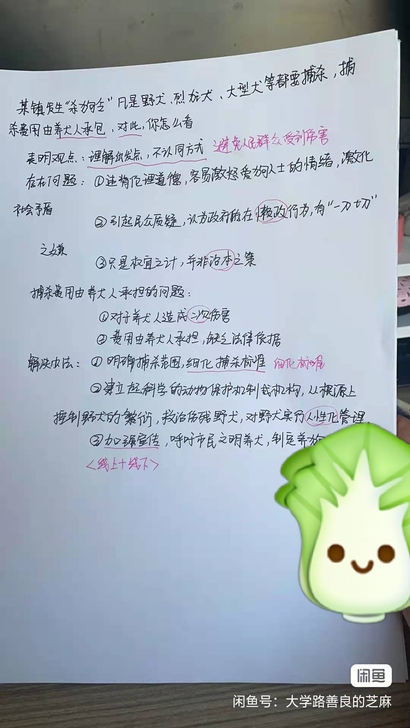 某镇发生“杀狗令”凡是野犬、烈性犬、大型犬等都要捕杀,捕
杀费用由养犬人承包,对此,你怎么看
表明观点:理解出发点,不认同方式 避免人民群众受到伤害
存在问题:①违背伦理道德,容易激怒爱狗人士的情绪,激化
社会矛盾
②引起民众质疑,认为政府存在懒政行为,有“一刀切”
之嫌
③只是权宜之计,并非治本之策
捕杀费用由养犬人承担的问题:
①对于养犬人造成二次伤害
②费用由养犬人承担,缺乏法律依据
解决办法:①明确捕杀范围,细化捕杀标准 细化标准
②建立起科学的动物保护机制或机构,从根源上
控制野犬的繁衍,救治伤残野犬,对野犬实行人性化管理
③加强宣传,呼吁市民文明养犬,制定养
<线上+线下>
闲鱼
闲鱼号:大学路善良的芝麻